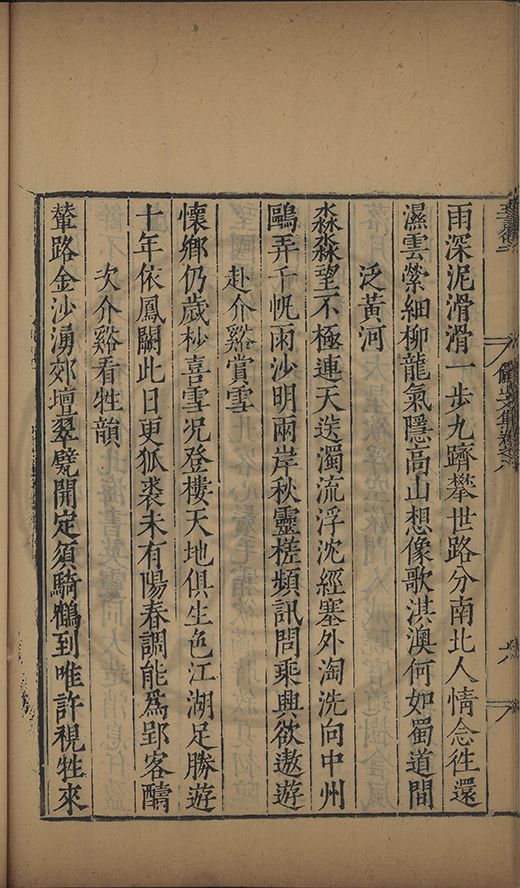 雨深泥滑滑一步九躋攀世路分南北人情念徃還
濕雲縈細柳龍氣隱高山想像歌淇澳何如蜀道間
泛黃河
淼淼望不極連天送濁流浮沈經塞外淘洗向中州
鷗弄千帆雨沙明兩岸秋靈槎頻訊問乘興欲遨遊
赴介谿賞雪
懷鄉仍歲杪喜雪況登樓天地俱生色江湖足勝遊
十年依鳳闕此日更狐裘未有陽春調能爲郢客酧
次介谿看牲韻
輦路金沙湧郊壇翠甓開定須騎鶴到唯許視牲來